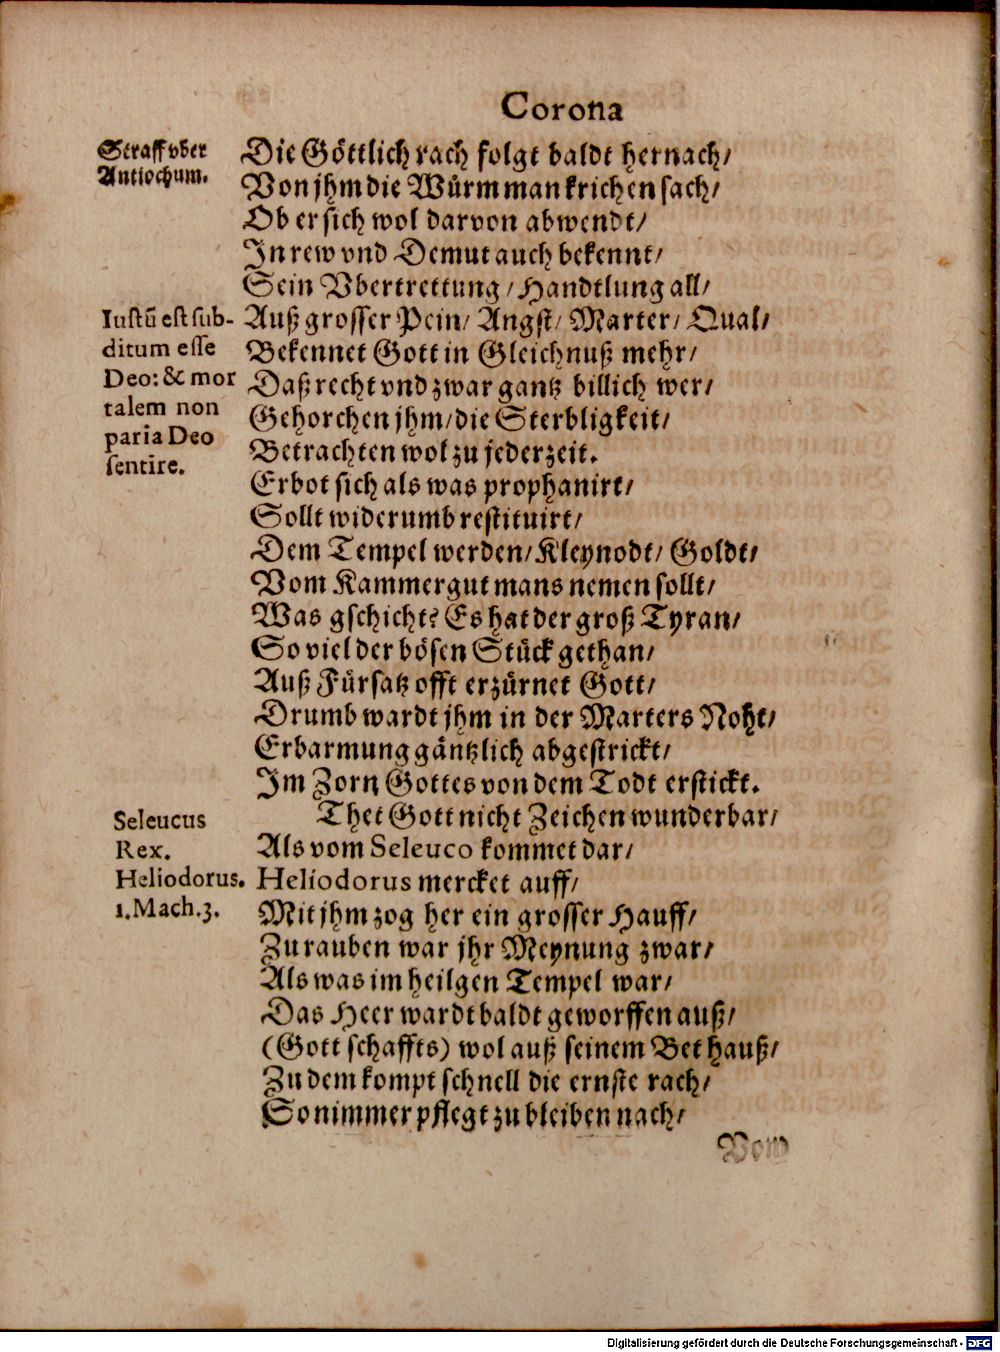 Corona
Straff vber
Antiochum.
Die Göttlich rach folgt baldt hernach/
Von jhm die Würm man krichen sach/
Ob er sich wol darvon abwendt/
In rew vnd Demut auch bekennt/
Sein Vbertrettung/ Handtlung all/
Iustū est sub-
ditum esse
Deo: & mor
talem non
paria Deo
sentire.
Auß grosser Pein/ Angst/ Marter/ Qual/
Bekennet Gott in Gleichnuß mehr/
Daß recht vnd zwar gantz billich wer/
Gehorchen jhm/ die Sterbligkeit/
Betrachten wol zu jederzeit.
Erbot sich als was prophanirt/
Sollt widerumb restituirt/
Dem Tempel werden/ Kleynodt/ Goldt/
Vom Kammergut mans nemen sollt/
Was gschicht? Es hat der groß Tyran/
So viel der bösen Stück gethan/
Auß Fürsatz offt erzürnet Gott/
Drumb wardt jhm in der Marters Noht/
Erbarmung gäntzlich abgestrickt/
Im Zorn Gottes von dem Todt erstickt.
Seleucus
Rex.
Heliodorus.
1. Mach. 3.
Thet Gott nicht Zeichen wunderbar/
Als vom Seleuco kommet dar/
Heliodorus mercket auff/
Mit jhm zog her ein grosser Hauff/
Zu rauben war jhr Meynung zwar/
Als was im heilgen Tempel war/
Das Heer wardt baldt geworffen auß/
(Gott schaffts) wol auß seinem Bethauß/
Zu dem kompt schnell die ernste rach/
So nimmer pflegt zu bleiben nach/
Vom
Digitalisierung gefördert durch die Deutsche Forschungsgemeinschaft - DFG